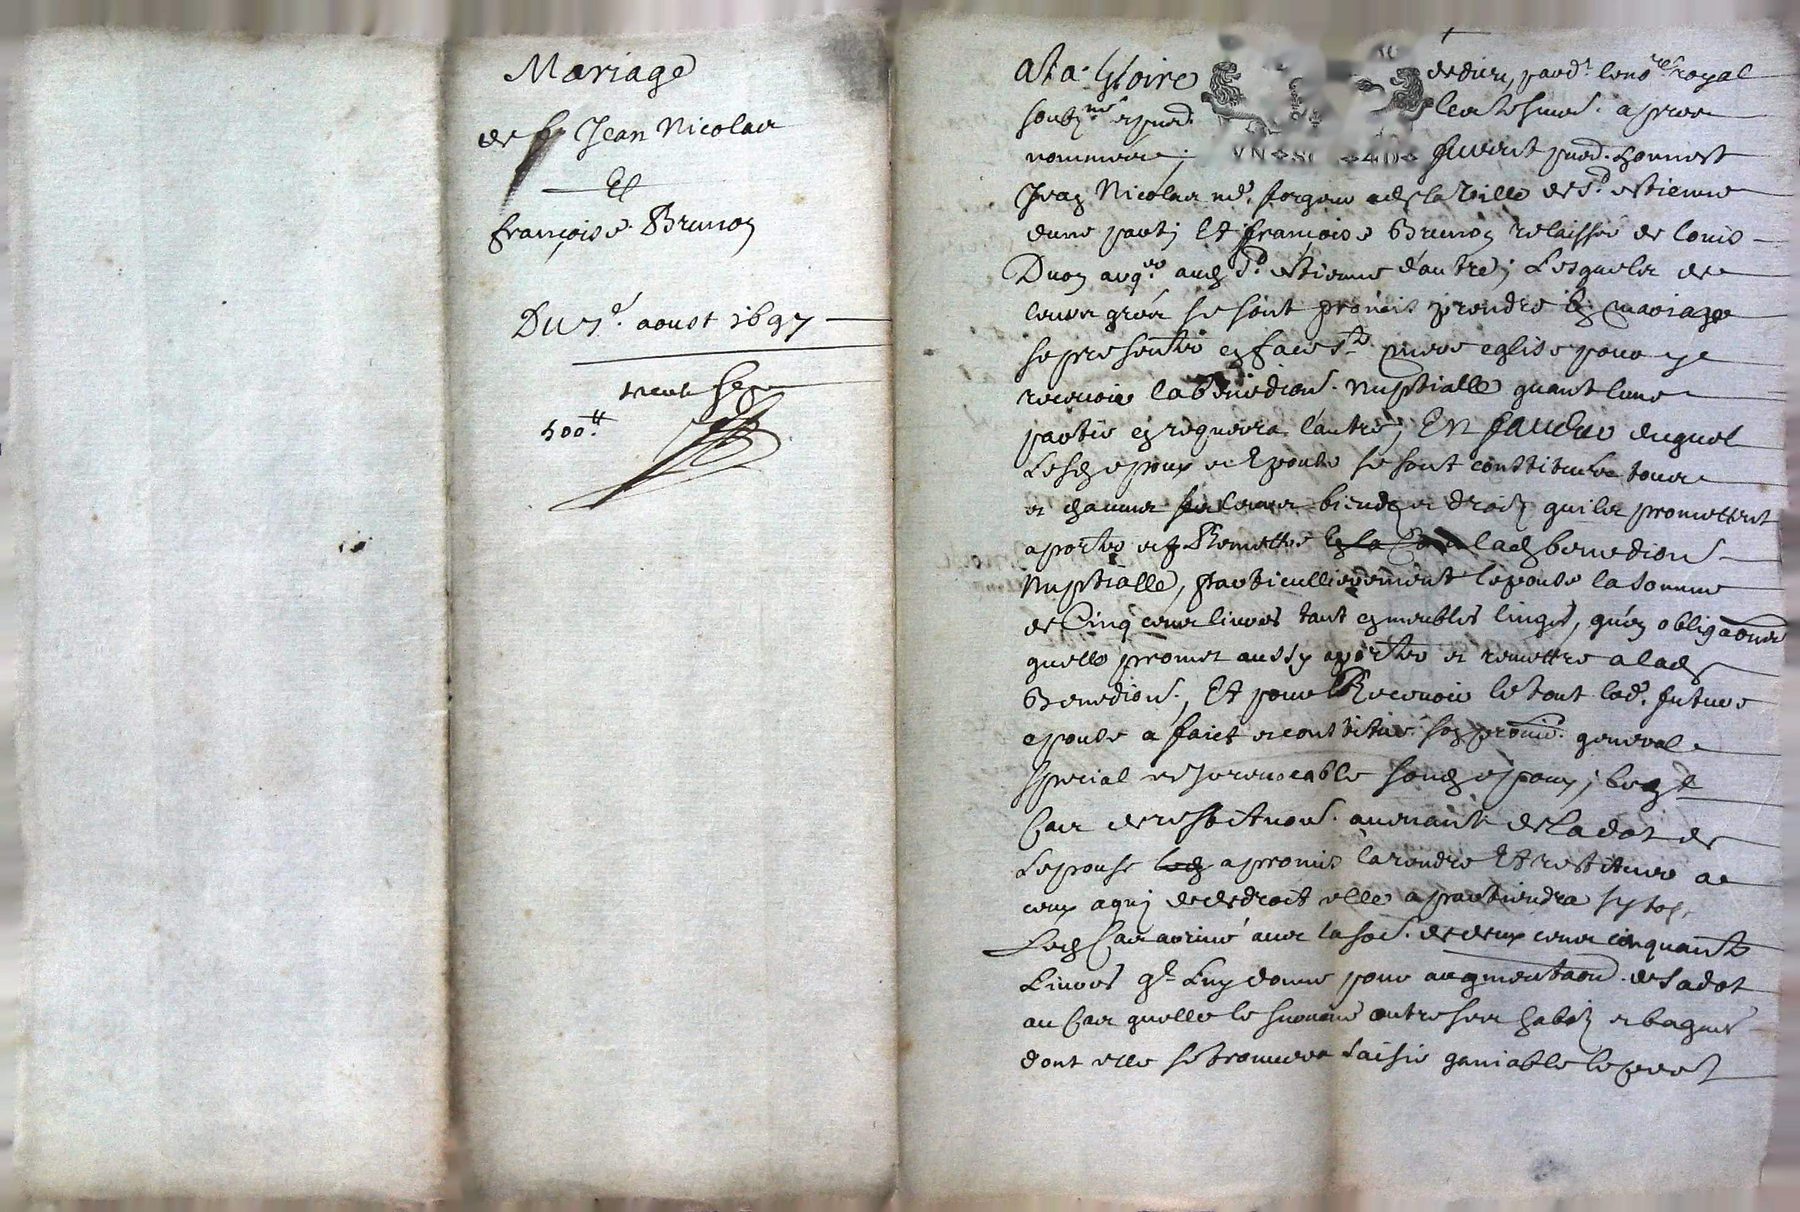 Mariage
de Jean Nicolas
Et
françoise Brunon
Du 7e. aoust 1697
500tt
A La Gloire de dieu, pard.t le no.re royal
soubz.né et pnts les tesmoins apres
nommes; VN SOL furent pnts honnest
Jean Nicolas md. forgeur de la ville de St. estienne
dune part; Et françoise Brunon relaissée de Louis
Duon aud St. estienne d'autre; Lesquels de
leurs grés se sont promis prendre En mariage
se presenter en face Ste mere eglise pour y
recevoir la benedion. Nuptialle quant lune
partie en requerra l'autre; En faveur duquel
Lesd epoux et Epouse se sont constitues tous
et chacuns leurs biens et droits quils promettent
aporter et Remettre a lad benedion
Nuptialle, particullierement lepouse la somme
de Cinq cens livres tant en meubles linges, qu'en obligaons
quelle promet aussy aporter et remettre a lad
Benedion. Et pour Recevoir le tout lad. future
epouse a faict et constitue son general
special et Irrevocable sond epoux; Le
Cas de restitution. avenant de la dot de
Lepouse a promis la rendre Et restituer a
ceux a qui de droit elle apartiendra
Led Cas arrivé avec la so.e de deux cens cinquante
Livres q.l Luy donne pour augmentaon. de sa dot
au Cas quelle le survive outre ses habits et bagues
dont elle se trouvera saisie